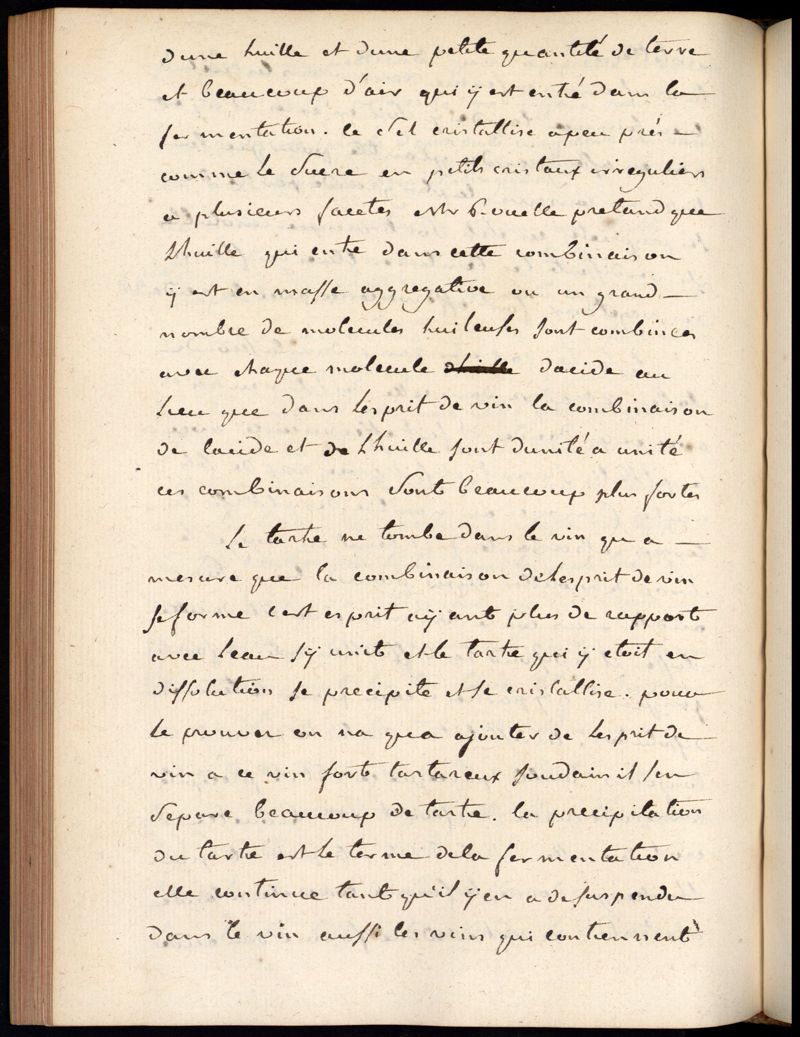 dune huille et dune petite quantité de terre
et beaucoup d'air qui ÿ est entré dans la
fermentation. ce sel cristallise apeu prés
comme le sucre en petits cristaux irreguliers
a plusieurs facetes Mr Rouelle pretend que
lhuille qui entre dans cette combinaison
ÿ est en masse aggregative ou un grand
nombre de molecules huileuses sont combinées
avec chaque molecule dacide au
lieu que dans lesprit de vin la combinaison
de lacide et de lhuille sont dunité a unité
ces combinaisons sont beaucoup plus fortes
le tartre ne tombe dans le vin qu a
mesure que la combinaison delesprit de vin
se forme cest esprit aÿant plus de rapport
avec leau sÿ unit et le tartre qui ÿ etoit en
dissolution se precipite et se cristallise. pour
le prouver on na qua ajouter de lesprit de
vin a ce vin fort tartareux soudain il sen
separe beaucoup de tartre. la precipitation
du tartre est le terme dela fermentation
elle continue tant qu'il ÿ en a de suspendu
dans le vin aussi les vins qui contiennent